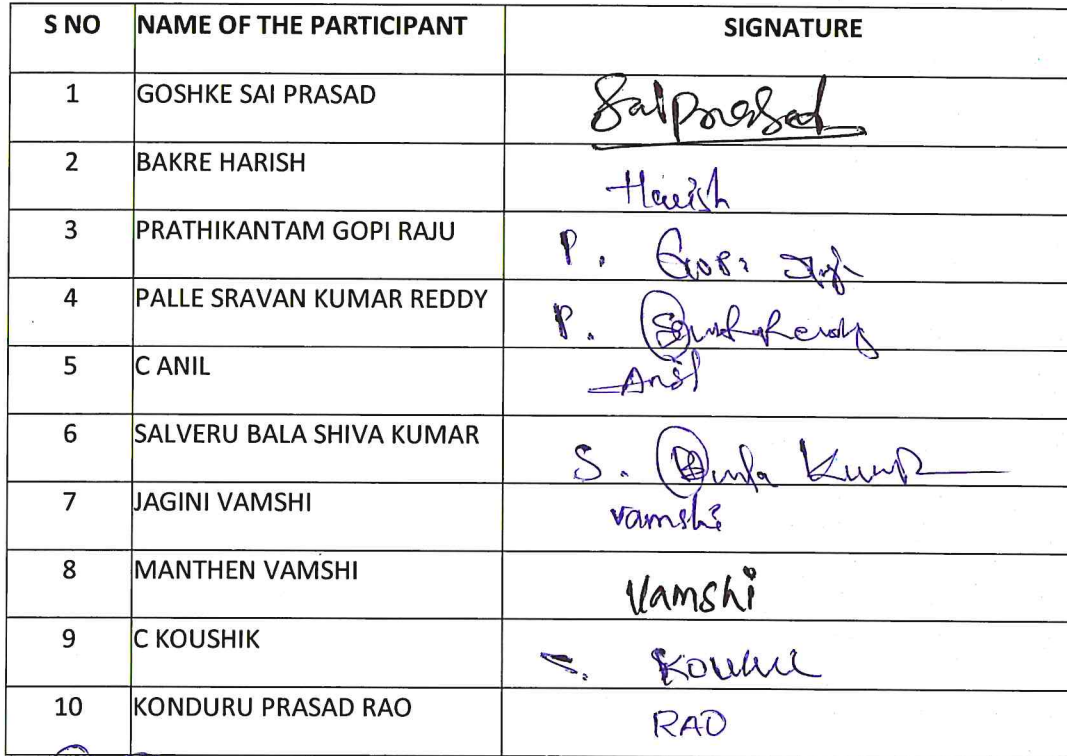 S NO NAME OF THE PARTICIPANT SIGNATURE
1 GOSHKE SAI PRASAD Saiprasad
2 BAKRE HARISH Harish
3 PRATHIKANTAM GOPI RAJU P. Gopi
4 PALLE SRAVAN KUMAR REDDY P.
5 C ANIL Anil
6 SALVERU BALA SHIVA KUMAR S. Kumar
7 JAGINI VAMSHI vamshi
8 MANTHEN VAMSHI Vamshi
9 C KOUSHIK
10 KONDURU PRASAD RAO RAO